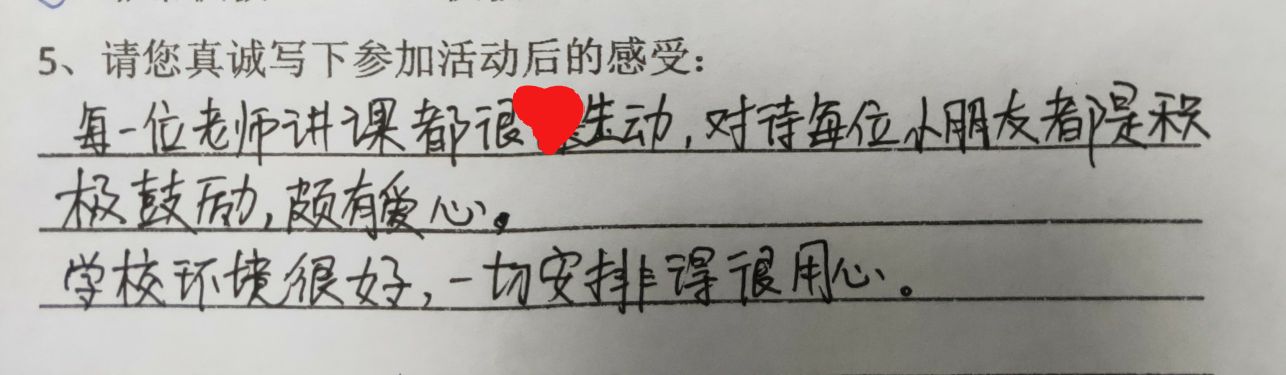 5、请您真诚写下参加活动后的感受：
每一位老师讲课都很生动，对待每位小朋友者都是积
极鼓励，颇有爱心。
学校环境很好，一切安排得很用心。